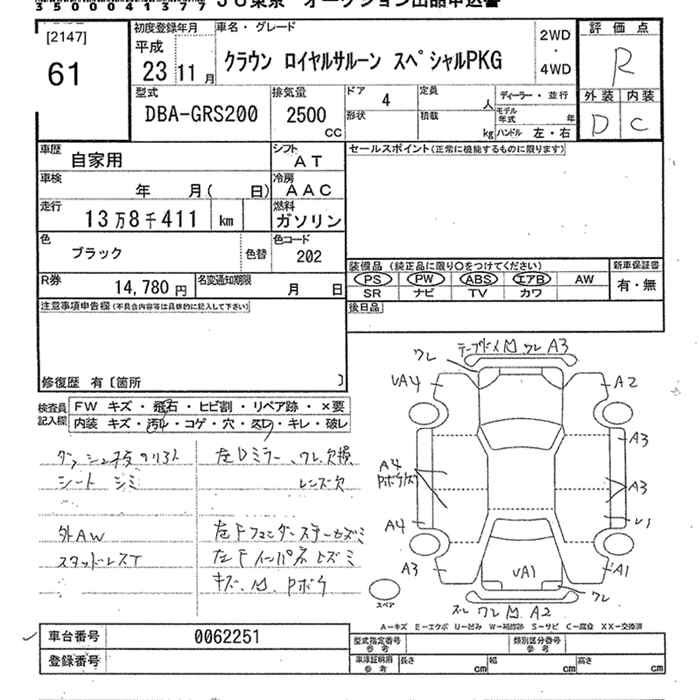 35000041377 JU東京 オークション出品申込書
[2147]
61
初度登録年月
平成
23年11月
車名・グレード
クラウン ロイヤルサルーン スペシャルPKG
2WD
・
4WD
評価点
R
外装 内装
D C
型式
DBA-GRS200
排気量
2500
CC
ドア 4
形状
定員 人
積載 kg
ディーラー・並行
モデル年式 年
ハンドル 左・右
車歴 自家用
シフト AT
車検 年 月( 日)
冷房 AAC
走行 13万8千411 km
燃料 ガソリン
色 ブラック 色替
色コード 202
R券 14,780円
名変通知期限 月 日
セールスポイント(正常に機能するものに限ります)
装備品(純正品に限り○をつけてください)
PS PW ABS エアB AW
SR ナビ TV カワ
新車保証書
有・無
後日品
注意事項申告欄(不具合内容等は具体的に記入して下さい)
修復歴 有〔箇所 〕
検査員記入欄
FW キズ・飛石・ヒビ割・リペア跡・×要
内装 キズ・汚れ・コゲ・穴・スレ・キレ・破レ
シート シミ
左Dミラー ワレ欠損
レンズ欠
外AW
スタッドレスT
左Fフェンダーステーセズミ
左Fインパネヒズミ
キズ、凹、Pボケ
ワレ
A3
UA4
A2
A3
A4
Pボケ
A3
U1
A4
A3
UA1
A1
ワレ
スレ ワレ 凹 A2
スペア
A－キズ E－エクボ U－凹み W－補修跡 S－サビ C－腐食 XX－交換済
車台番号 0062251
登録番号
型式指定番号
参考
類別区分番号
参考
車庫証明用
参考
長さ cm 幅 cm 高さ cm